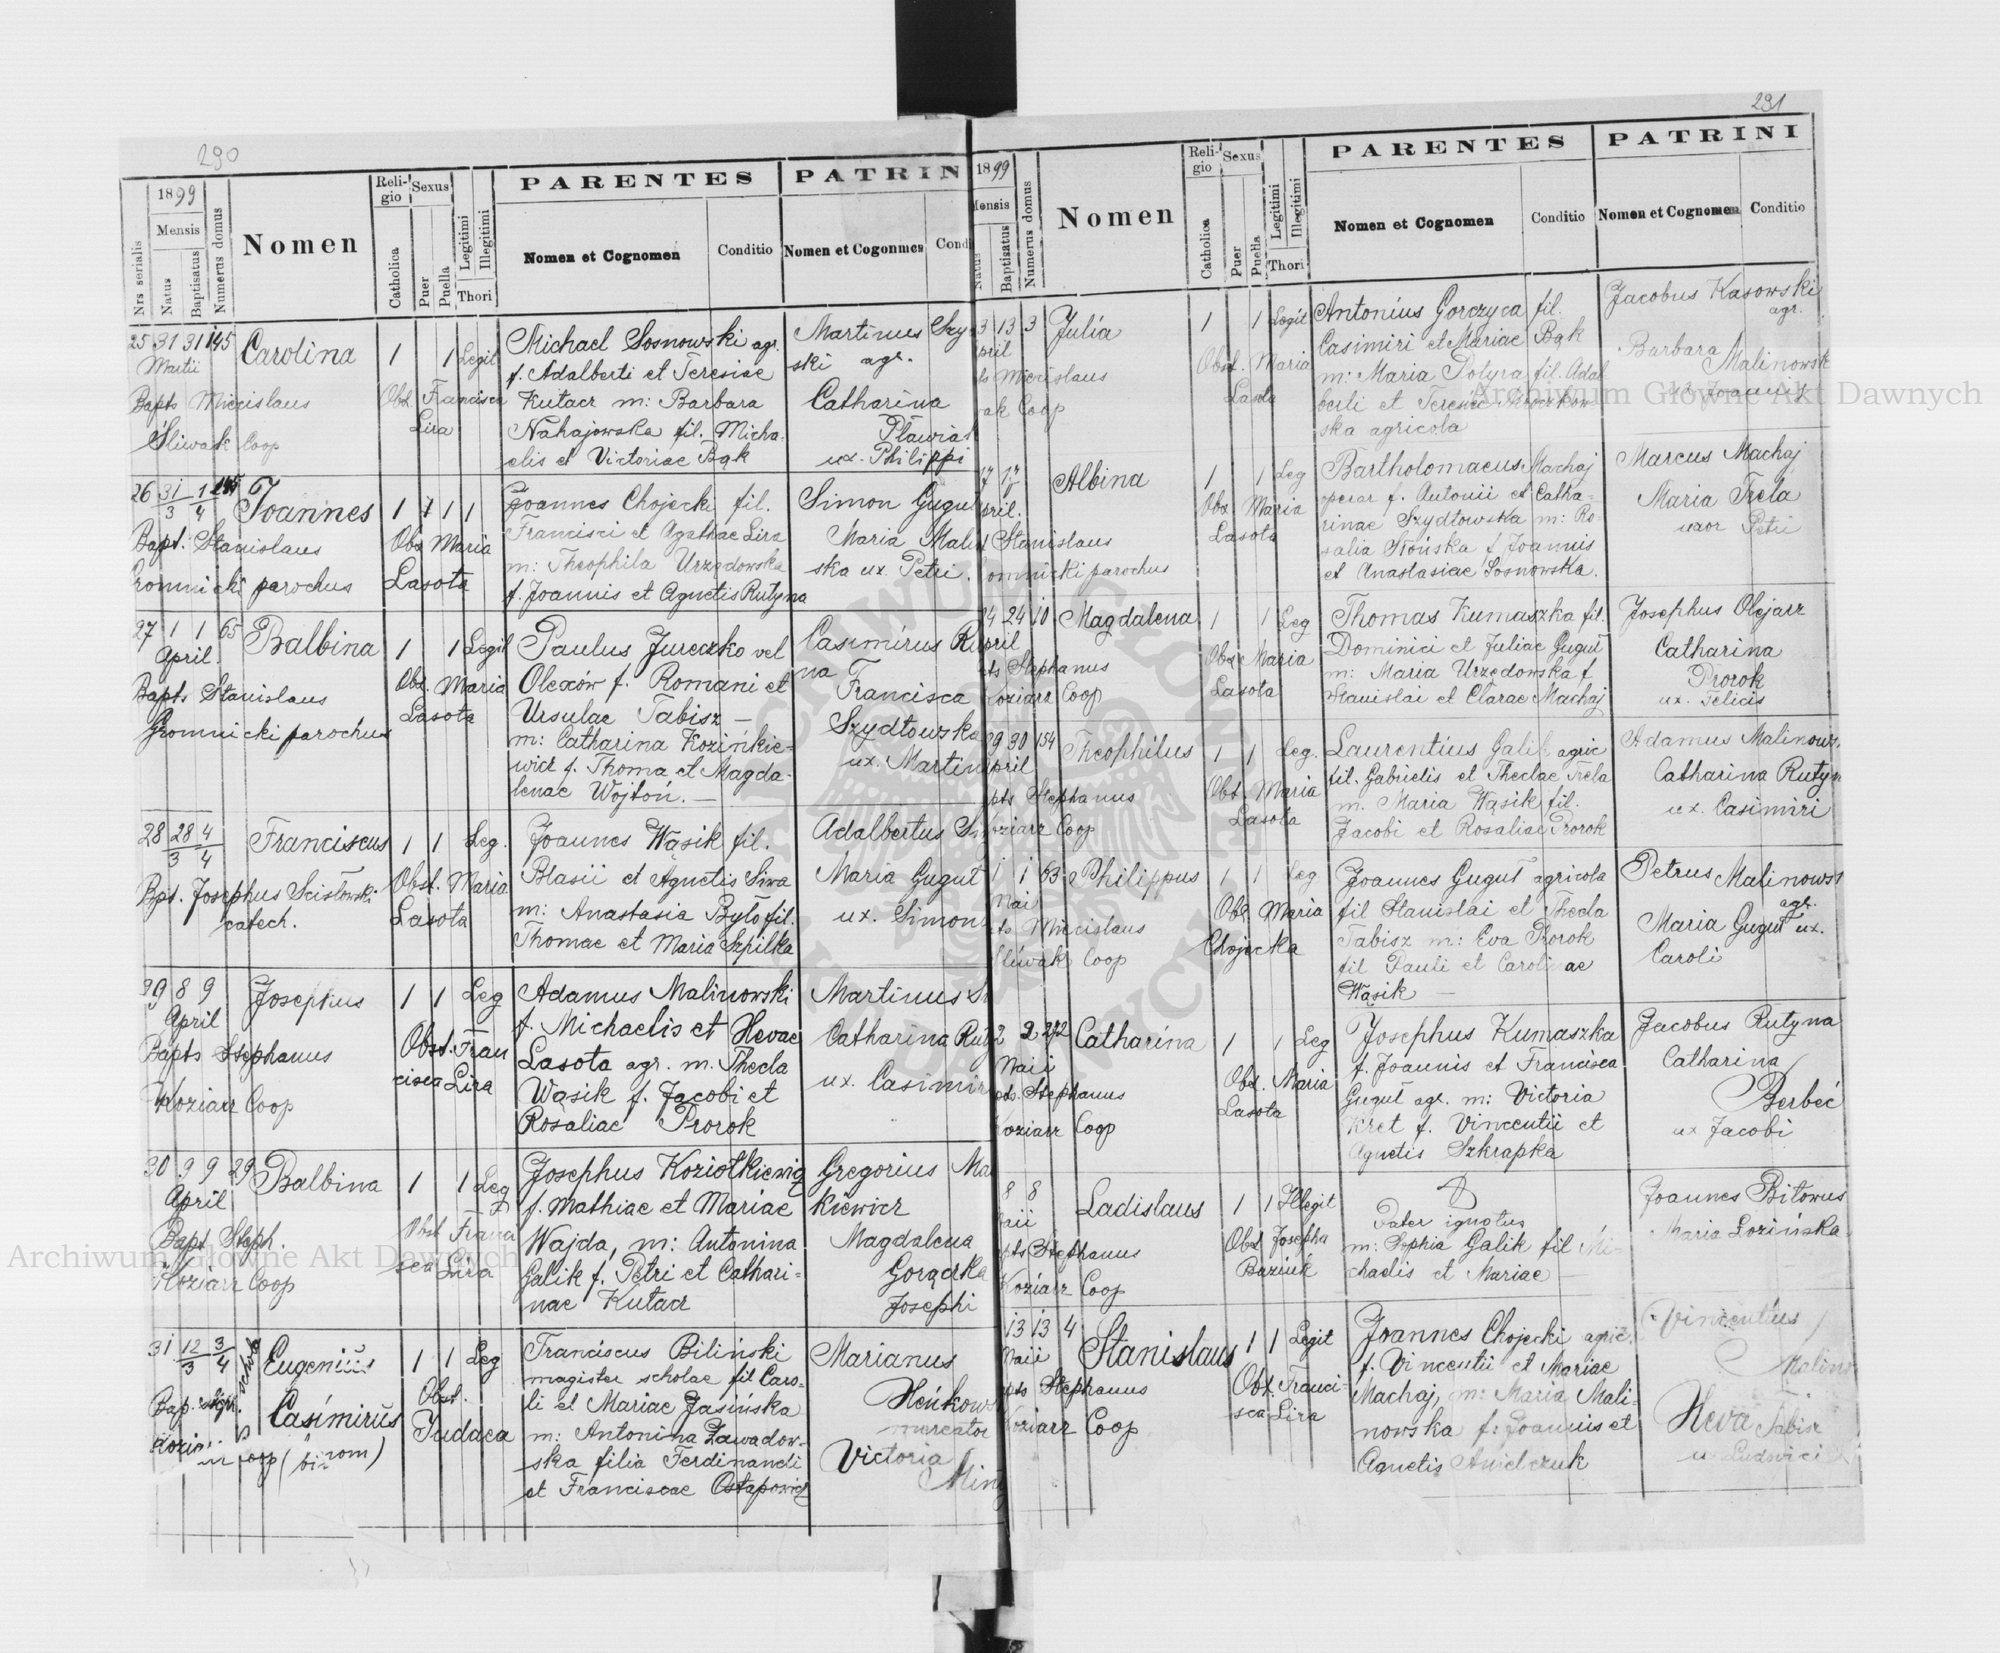 290
1899
Nrs serialis
Mensis
Natus
Baptisatus
Numerus domus
Nomen
Religio
Catholica
Sexus
Puer
Puella
Legitimi
Illegitimi
Thori
PARENTES
Nomen et Cognomen
Conditio
PATRIN
Nomen et Cogonmes
Cond
25 31 31 145 Carolina 1 1 Legit
Martii
Bapts Miecislaus
Śliwak Coop
Obst. Francisca
Lira
Michael Sosnowski agr.
f. Adalberti et Teresiae
Kutacz m: Barbara
Nahajowska fil. Micha-
elis et Victoriae Bąk
Martinus Szy
ski agr.
Catharina
ux. Philippi
26 31 1 Joannes 1 1 1 1
3 4
Bapt. Stanislaus
parochus
Obs Maria
Lasota
Joannes Chojecki fil.
Francisci et Agathae Lira
m: Theophila Urzędowska
f. Joannis et Agnetis Rutyna
Simon Gugu
Maria Mali
ska ux. Petri.
27 1 1 65 Balbina 1 1 Legit
April
Bapts Stanislaus
Gromnicki parochus
Obst. Maria
Lasota
Paulus Jureczko vel
Olexów f. Romani et
Ursulae Tabisz —
m: Catharina Kozińkie-
wicz f. Thoma et Magda-
lenae Wojtoń. —
Casimirus Ru
na
Francisca
Szydłowska
ux. Martin
28 28 4 Franciscus 1 1 Leg.
3 4
Bpt. Josephus Scisłowski
catech.
Obst. Maria
Lasota
Joannes Wąsik fil.
Blasii et Agnetis Siwa
m: Anastasia Było fil.
Thomae et Maria Szpilka
Adalbertus
Maria Guguł
ux. Simon
29 8 9 Josephus 1 1 Leg
April
Bapts Stephanus
Koziarz Coop
Obst. Fran
cisca Lira
Adamus Malinowski
f. Michaelis et Hevae
Lasota agr. m. Thecla
Wąsik f. Jacobi et
Rosaliae Prorok
Martinus
Catharina Rut
ux. Casimir
30 9 9 29 Balbina 1 1 Leg
April
Bapt Steph.
Koziarz Coop
Obst Franci
sca Lira
Josephus Koziołkiewicz
f. Mathiae et Mariae
Wajda, m: Antonina
Galik f. Petri et Cathari-
nae Kutacz
Gregorius Ma
kiewicz
Magdalena
Gorączka
Josephi
31 12 3 Eugenius 1 1 Leg
3 4
Casimirus
(binom)
Obst.
Judaea
Franciscus Biliński
magister scholae fil Caro-
li et Mariae Jasińska
m: Antonina Zawadow-
ska filia Ferdinandi
et Franciscae Ostapowicz
Marianus
Heńkows
mercator
Victoria
291
1899
Mensis
Natus
Baptisatus
Numerus domus
Nomen
Religio
Catholica
Sexus
Puer
Puella
Legitimi
Illegitimi
Thori
PARENTES
Nomen et Cognomen
Conditio
PATRINI
Nomen et Cognomen
Conditio
3 13 3 Julia 1 1 Legit
pril
ts Miecislaus
ak Coop
Obst. Maria
Lasota
Antonius Gorczyca fil.
Casimiri et Mariae Bąk
m: Maria Połyra fil. Adal
berti et Teresiae
ska agricola
Jacobus Kasowski
agr.
Barbara Malinowsk
ux Joannis
7 17 Albina 1 1 Leg
pril.
Stanislaus
omnicki parochus
Obst Maria
Lasota
Bartholomaeus Machaj
operar f. Antonii et Catha-
rinae Szydłowska m: Ro-
salia Słońska f. Joannis
et Anastasiae Sosnowska.
Marcus Machaj
Maria Trela
uxor Petri
24 24 10 Magdalena 1 1 Leg
pril
ts Stephanus
Koziarz Coop
Obst Maria
Lasota
Thomas Kumaszka fil.
Dominici et Juliae Guguł
m: Maria Urzędowska f
Stanislai et Clarae Machaj
Josephus Olejarz
Catharina
Prorok
ux. Felicis
29 30 154 Theophilus 1 1 Leg.
pril
pts Stephanus
oziarz Coop
Obst. Maria
Lasota
Laurentius Galik agric
fil. Gabrielis et Theclae Trela
m. Maria Wąsik fil.
Jacobi et Rosaliae Prorok
Adamus Malinows
Catharina Rutyn
ux. Casimiri
1 1 63 Philippus 1 1 Leg
Mai
ts Miecislaus
Śliwak Coop
Obst. Maria
Chojecka
Joannes Guguł agricola
fil Stanislai et Thecla
Tabisz m: Eva Prorok
fil Pauli et Carolinae
Wąsik —
Petrus Malinows
agr.
Maria Guguł ux.
Caroli
2 2 272 Catharina 1 1 Leg
Maii
pts. Stephanus
Koziarz Coop
Obst. Maria
Lasota
Josephus Kumaszka
f. Joannis et Francisca
Guguł agr. m: Victoria
Kret f. Vincentii et
Agnetis Szkrapka
Jacobus Rutyna
Catharina
Berbeć
ux Jacobi
8 8 Ladislaus 1 1 Illegit
aii
pts Stephanus
Koziarz Coop
Obst Josepha
Baziuk
Pater ignotus
m: Sophia Galik fil Mi-
chaelis et Mariae —
Joannes Bitowus
Maria Lozińska
13 13 4 Stanislaus 1 1 Legit
Maii
pts Stephanus
Koziarz Coop
Obst. Franci-
sca Lira
Joannes Chojecki agric.
f. Vincentii et Mariae
Machaj, m: Maria Mali-
nowska f. Joannis et
Agnetis Anielczuk
Vincentius
Malino
Heva Tabisz
ux Ludovici
Archiwum Główne Akt Dawnych
Archiwum Główne Akt Dawnych